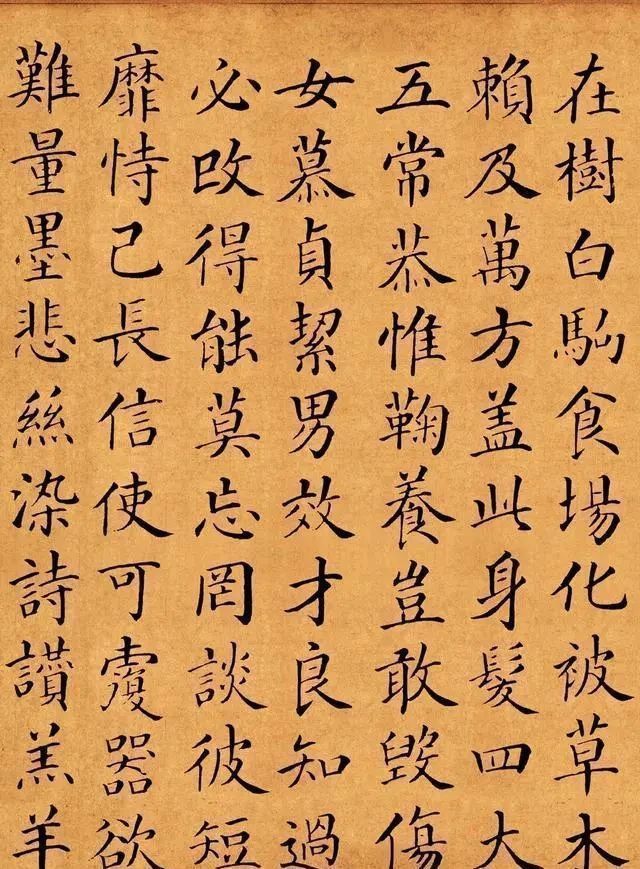 在樹白駒食場化被草木
賴及萬方蓋此身髮四大
五常恭惟鞠養豈敢毀傷
女慕貞絜男效才良知過
必改得能莫忘罔談彼短
靡恃己長信使可覆器欲
難量墨悲絲染詩讚羔羊